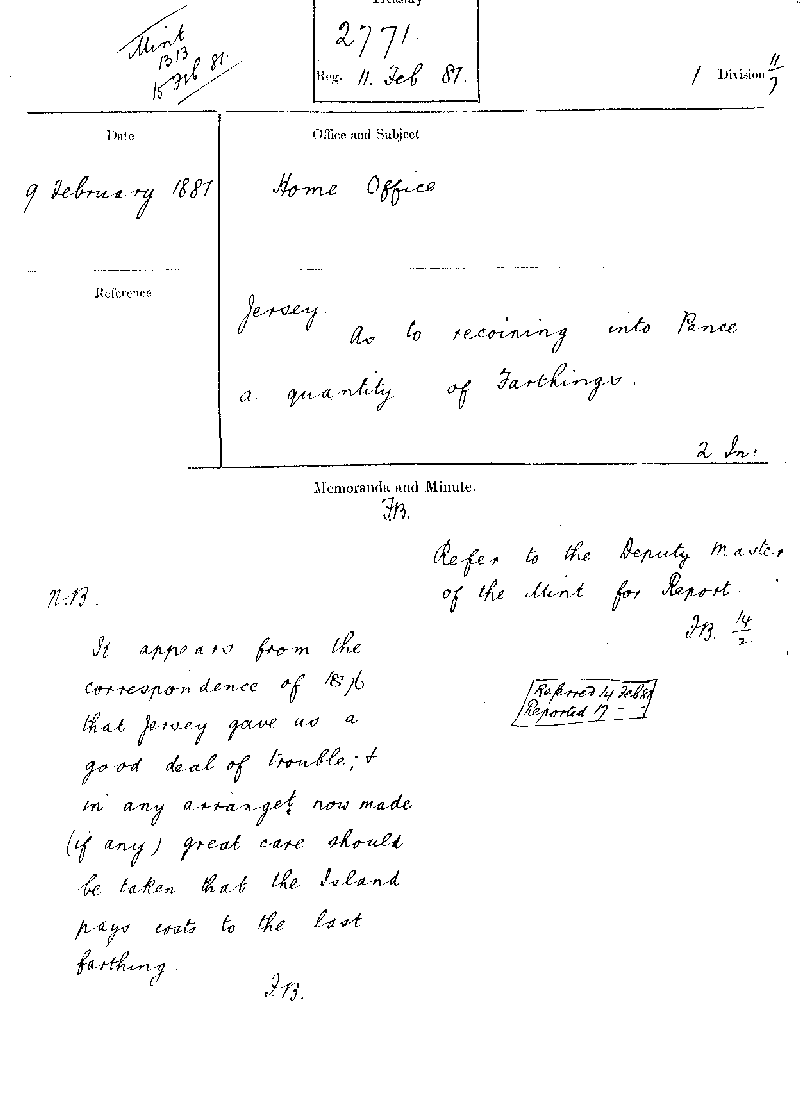 Mint
1313
15 Feb 81.
Treasury
2771.
Reg. 11. Feb 81.
1 Division 11/7
Date
Office and Subject
9 February 1881
Home Office
Reference
Jersey.
As to recoining into Pence
a quantity of Farthings.
2 In:
Memoranda and Minute.
F.B.
Refer to the Deputy Master
of the Mint for Report.
F.B. 14/2
N.B.
It appears from the
correspondence of 1876
that Jersey gave us a
good deal of trouble; &
in any arranget. now made
(if any) great care should
be taken that the Island
pays costs to the last
farthing.
F.B.
Referred 14 Feb 81
Reported 17 – –